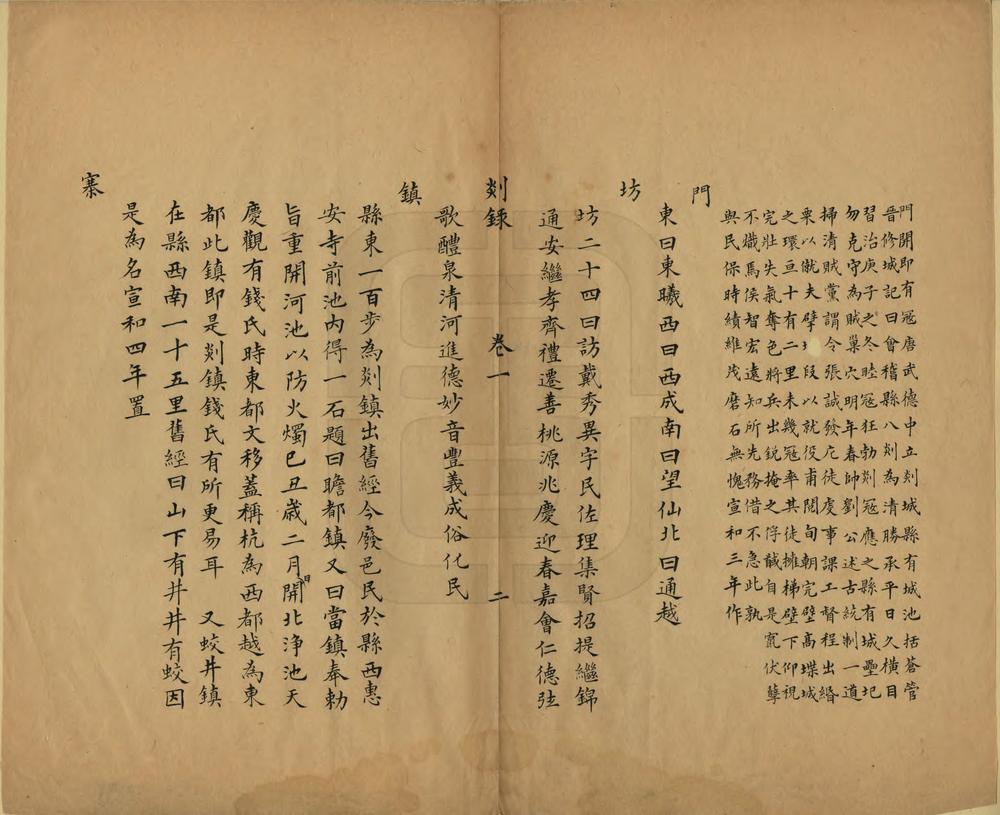 門開即有冠唐武德中立剡城縣有城池括蒼管
晉修城記曰會稽縣八剡為清勝承平日久橫目
習治庚子之冬睦冦狂勃剡冦應之縣有城壘圮
勿克守為賊巢穴明年春帥劉公述古統制一道
掃清賊黨謂令張誠發尼徒虔事課工督程出緡
粟以僦夫擘地段以就役甫閱旬朝完壁高堞城
之環亘十有二里未幾冦率其徒擁梯壁下仰視
完壯失氣奪色將兵出銳掩之俘馘自是竄伏孽
不熾焉侯智宏遠知所先務借不急此孰
與民保時績維茂磨石無愧宣和三年作
門
東曰東曦西曰西成南曰望仙北曰通越
坊
坊二十四曰訪戴秀異字民佐理集賢招提繼錦
通安繼孝齊禮遷善桃源兆慶迎春嘉會仁德弦
剡錄 卷一 二
歌醴泉清河進德妙音豐義成俗化民
鎮
縣東一百步為剡鎮出舊經今廢邑民於縣西惠
安寺前池內得一石題曰瞻都鎮又曰當鎮奉勅
旨重開河池以防火燭巳丑歲二月開北淨池天
慶觀有錢氏時東都文移蓋稱杭為西都越為東
都此鎮即是剡鎮錢氏有所更易耳 又蛟井鎮
在縣西南一十五里舊經曰山下有井井有蛟因
是為名宣和四年置
寨